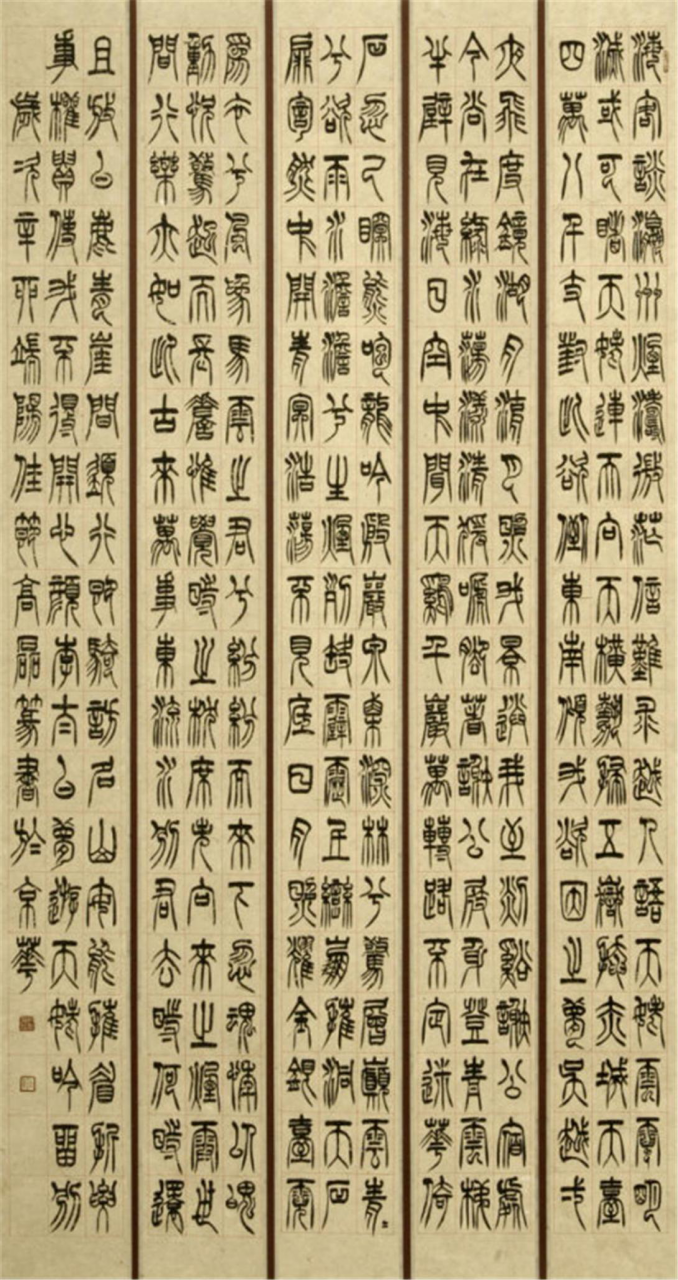 海客談瀛洲煙濤微茫信難求越人語天姥雲霓明
滅或可睹天姥連天向天橫勢拔五嶽掩赤城天臺
四萬八千丈對此欲倒東南傾我欲因之夢吳越弌
夜飛度鏡湖月湖月照我影送我至剡谿謝公宿處
今尚在淥水蕩漾清猨啼腳著謝公屐身登青雲梯
半壁見海日空中聞天雞千巖萬轉路不定迷華倚
石忽已暝熊咆龍吟殷巖泉栗深林兮驚層巔雲青
兮欲雨水澹澹兮生煙列缺霹靈丘巒崩摧洞天石
扉訇然中開青冥浩蕩不見底日月照耀金銀臺霓
為衣兮風為馬雲之君兮紛紛而來下忽魂悸以魄
動怳驚起而長嗟惟覺時之枕席失向來之煙霞世
間行樂亦如此古來萬事東流水別君去時何時還
且放白鹿青崖間須行即騎訪名山安能摧眉折腰
事權貴使我不得開心顏李太白夢遊天姥吟留別
歲次辛卯端陽佳節高磊篆書於京華